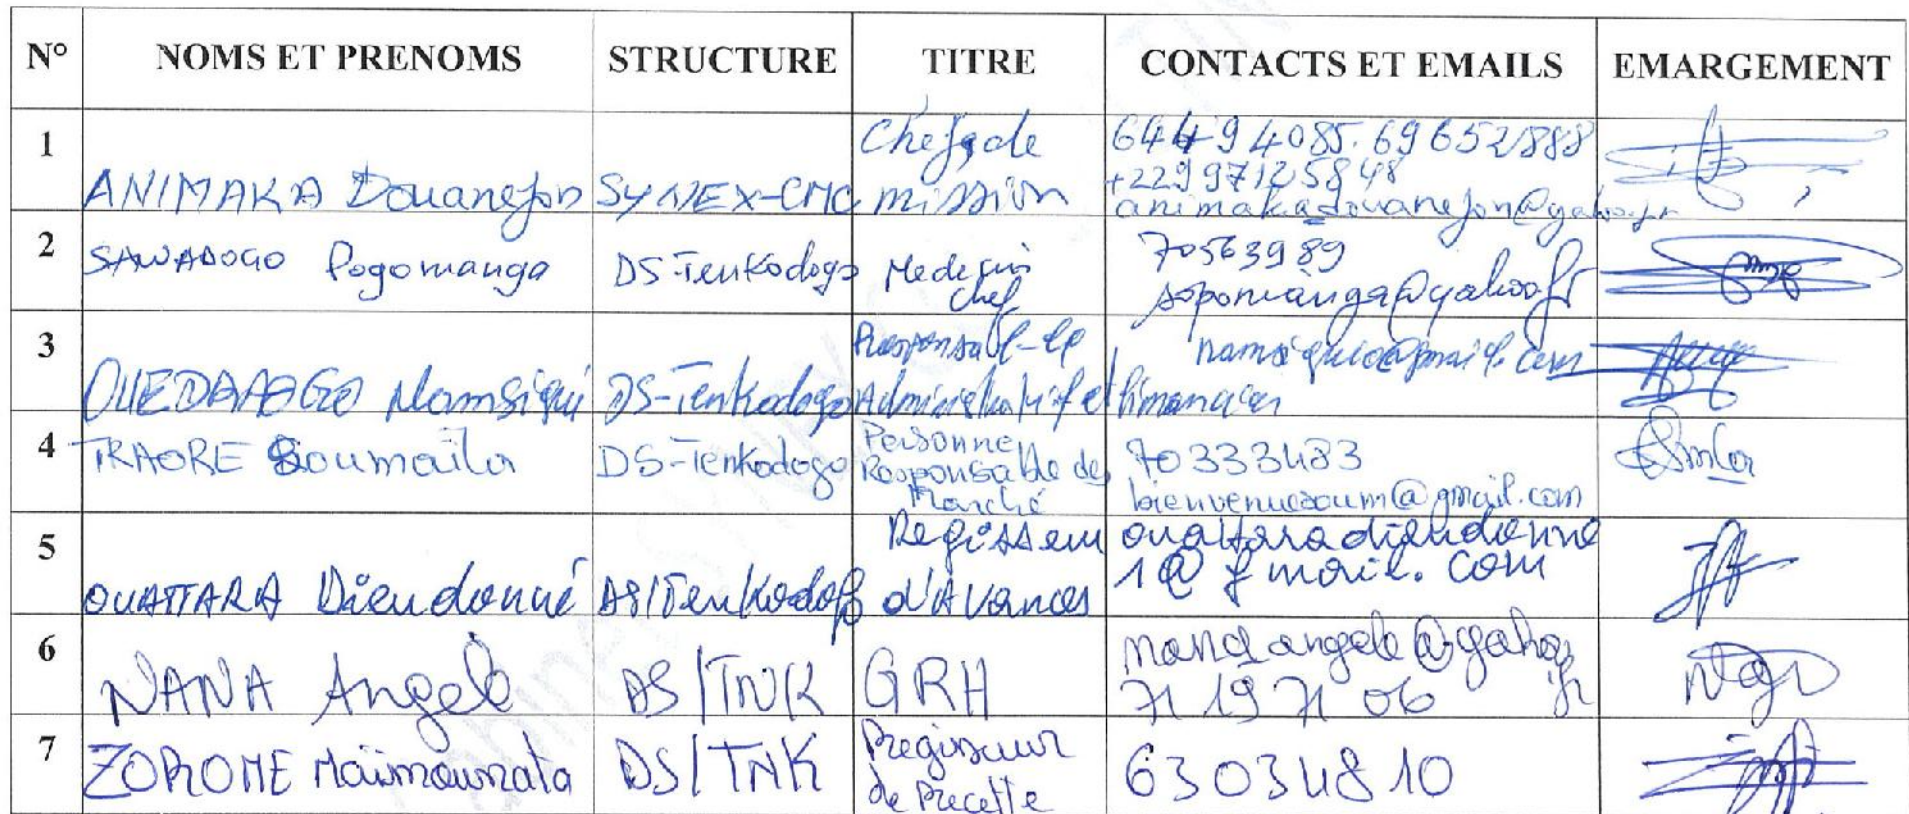 N° NOMS ET PRENOMS STRUCTURE TITRE CONTACTS ET EMAILS EMARGEMENT
1 ANIMAKA Douanejon SYNEX-CMC Chef de mission 64494085. 69652888
+229 97125848
animakadouanejon@yahoo.fr
2 SAWADOGO Pogomanga DS-Tenkodogo Medecin chef 70563989
sopomanga@yahoo.fr
3 OUEDRAOGO Namsigui DS-Tenkodogo Responsable Administratif et financier
4 TRAORE Soumaila DS-Tenkodogo Personne Responsable des Marché 70333483
bienvenuesoum@gmail.com
5 OUATTARA Dieudonné DS/Tenkodogo Regisseur d'Avances ouattaradieudonne
1@gmail.com
6 NANA Angele DS/TNK GRH nanaangele@yahoo.fr
71 19 71 06
7 ZOROME Maïmounata DS/TNK Regisseur de Recette 63034810